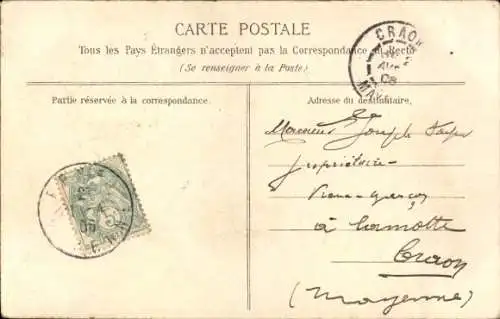 CARTE POSTALE
Tous les Pays Étrangers n'acceptent pas la Correspondance au Recto
(Se renseigner à la Poste)
Partie réservée à la correspondance.
Adresse du destinataire.
CRAON
08
MAY
5
Monsieur Joseph
propriétaire
à Lamotte
Craon
(Mayenne)